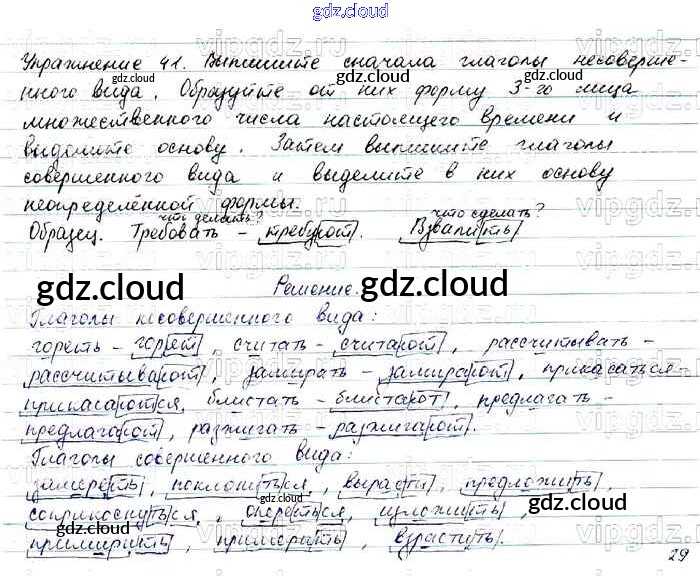 gdz.cloud
Упражнение 41. Выпишите сначала глаголы несовершен-
нного вида. Образуйте от них форму 3-го лица
множественного числа настоящего времени и
выделите основу. Затем выпишите глаголы
совершенного вида и выделите в них основу
неопределённой формы.
что делать? что сделать?
Образец. Требовать - требуют. Взвалить
gdz.cloud gdz.cloud
Решение.
Глаголы несовершенного вида:
гореть - горят, считать - считают, рассчитывать -
рассчитывают, замирать - замирают, прикасаться -
прикасаются, блистать - блистают, предлагать -
предлагают, разжигать - разжигают.
Глаголы совершенного вида:
замереть, поклониться, вырасти, предложить,
соприкоснуться, опереться, изложить,
примирить, примерить, взрастить.
29